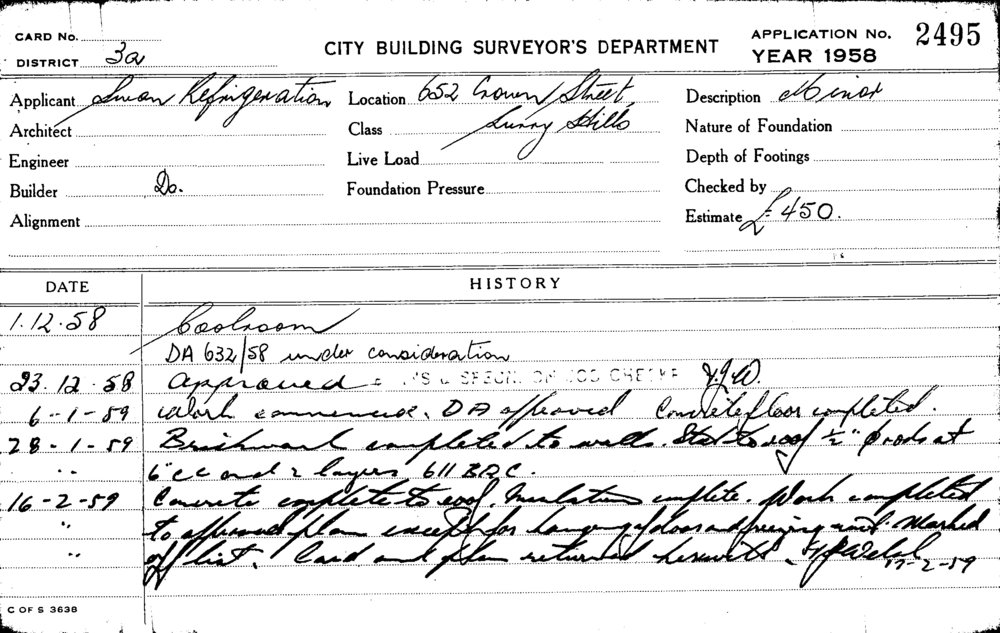 CARD No.
DISTRICT 3a
CITY BUILDING SURVEYOR'S DEPARTMENT
APPLICATION No. 2495
YEAR 1958
Applicant Swan Refrigeration
Location 652 Crown Street,
Surry Hills
Description Minor
Architect
Class
Nature of Foundation
Engineer
Live Load
Depth of Footings
Builder Do.
Foundation Pressure
Checked by
Alignment
Estimate £450.
DATE HISTORY
1.12.58 Coolroom
DA 632/58 under consideration
23.12.58 Approved
6-1-59 Work commenced. DA approved Concrete floor completed.
28-1-59 Brickwork completed to walls. Steel to roof ½" ø rods at
" 6" cc and 2 layers 611 BRC.
16-2-59 Concrete complete to roof. Insulation complete. Work completed
" to approved plan except for hanging of door and freezing unit. Marked
" off list. Card and plan returned herewith.
17-2-59
C OF S 3638